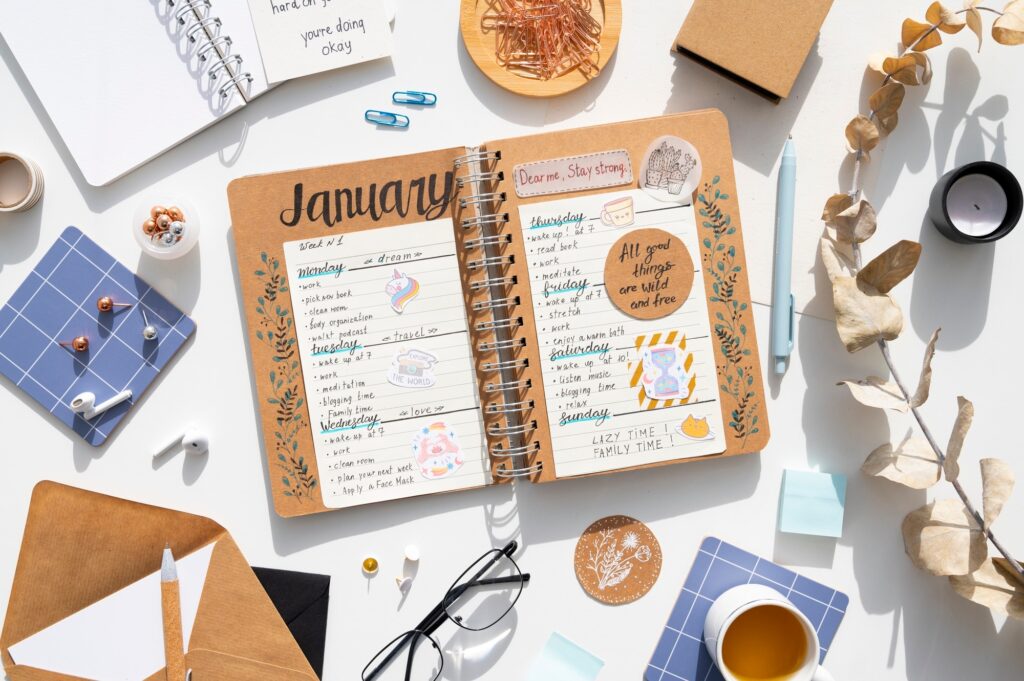 hard on yo
you're doing
okay
January
Week N1
Monday
« dream »
• work
• pick new book
• clean room
• body organization
• walk+ podcast
Tuesday
« travel »
• wake up at 7
• work
• meditation
• blogging time
• Family time
EXPLORE
THE WORLD
Wednesday
« love »
• wake up at 7
• work
• clean room
• plan your next week
• Apply a Face Mack
Dear me, Stay strong.
thursday
• wake up! at 7
• read book
• work
• meditate
friday
• wake up at 7
• stretch
• work
• enjoy a warm bath
All good
things
are wild
and free
Saturday
• wake up at 10!
• listen music
• blogging time
• relax
Sunday
LAZY TIME!
FAMILY TIME!